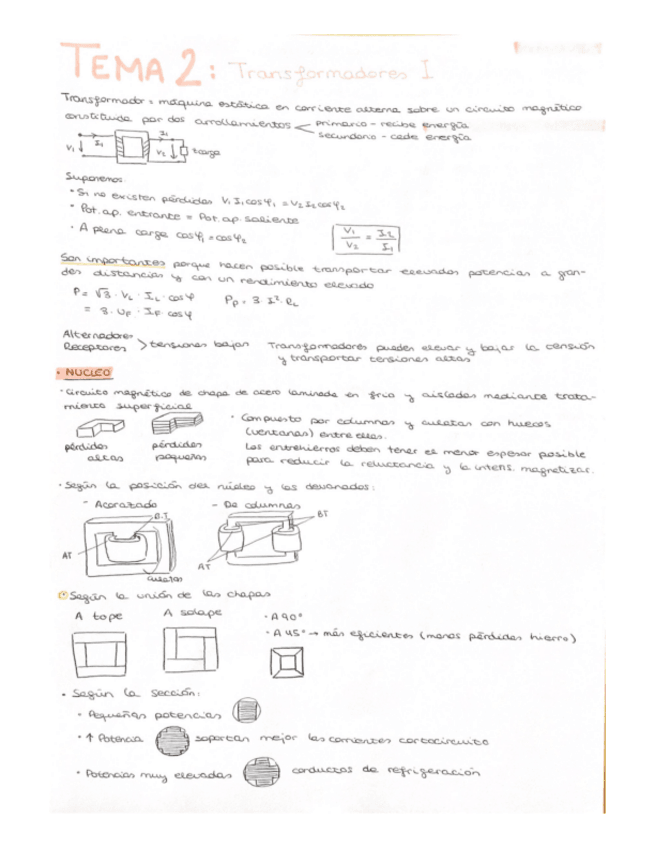 TEMA 2: Transformadores I
Transformador: máquina estática en corriente alterna sobre un circuito magnético
constituida por dos arrollamientos < primario - recibe energía
secundario - cede energía
V₁ I₁ I₂ V₂ carga
Suponemos:
· Si no existen pérdidas V₁ I₁ cosφ₁ = V₂ I₂ cosφ₂
· Pot. ap. entrante = Pot. ap. saliente
· A plena carga cosφ₁ = cosφ₂
V₁/V₂ = I₂/I₁
Son importantes porque hacen posible transportar elevadas potencias a gran-
des distancias y con un rendimiento elevado
P = √3 · V_L · I_L · cosφ
Pp = 3 · I² · R_L
= 3 · U_F · I_F · cosφ
Alternadores
Receptores > tensiones bajas
Transformadores pueden elevar y bajar la tensión
y transportar tensiones altas
· NÚCLEO
· Circuito magnético de chapa de acero laminada en frío y aisladas mediante trata-
miento superficial
pérdidas altas
pérdidas pequeñas
· Compuesto por columnas y culatas con huecos
(ventanas) entre ellas.
Los entrehierros deben tener el menor espesor posible
para reducir la reluctancia y la intens. magnetizar.
· Según la posición del núcleo y los devanados:
- Acorazado
- De columnas
B.T
BT
AT
AT
culatas
Según la unión de las chapas
A tope
A solape
· A 90°
· A 45° → más eficientes (menos pérdidas hierro)
· Según la sección:
· Pequeñas potencias
· ↑ Potencia soportan mejor las corrientes cortocircuito
· Potencias muy elevadas conductos de refrigeración